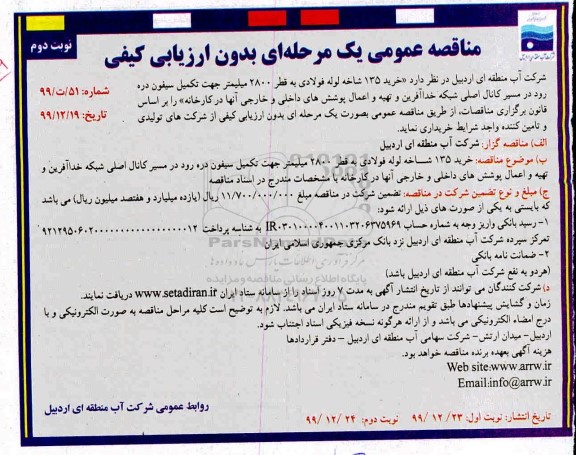 نوبت دوم
مناقصه عمومی یک مرحله‌ای بدون ارزیابی کیفی
شماره: ۵۱/ت/۹۹
تاریخ: ۹۹/۱۲/۱۹
شرکت آب منطقه ای اردبیل در نظر دارد «خرید ۱۳۵ شاخه لوله فولادی به قطر ۲۸۰۰ میلیمتر جهت تکمیل سیفون دره
رود در مسیر کانال اصلی شبکه خداآفرین و تهیه و اعمال پوشش های داخلی و خارجی آنها در کارخانه» را بر اساس
قانون برگزاری مناقصات، از طریق مناقصه عمومی بصورت یک مرحله ای بدون ارزیابی کیفی از شرکت های تولیدی
و تامین کننده واجد شرایط خریداری نماید.
الف) مناقصه گزار: شرکت آب منطقه ای اردبیل
ب) موضوع مناقصه: خرید ۱۳۵ شاخه لوله فولادی به قطر ۲۸۰۰ میلیمتر جهت تکمیل سیفون دره رود در مسیر کانال اصلی شبکه خداآفرین و
تهیه و اعمال پوشش های داخلی و خارجی آنها در کارخانه با مشخصات مندرج در اسناد مناقصه
ج) مبلغ و نوع تضمین شرکت در مناقصه: تضمین شرکت در مناقصه مبلغ ۱۱/۷۰۰/۰۰۰/۰۰۰ ریال (یازده میلیارد و هفتصد میلیون ریال) می باشد
که بایستی به یکی از صورت های ذیل ارائه شود:
۱- رسید بانکی واریز وجه به شماره حساب IR۰۳۰۱۰۰۰۰۴۰۰۱۱۰۳۲۰۶۳۷۵۹۶۹ به شناسه پرداخت
تمرکز سپرده شرکت آب منطقه ای اردبیل نزد بانک مرکزی جمهوری اسلامی ایران
۲- ضمانت نامه بانکی
(هردو به نفع شرکت آب منطقه ای اردبیل باشد)
د) شرکت کنندگان می توانند از تاریخ انتشار آگهی به مدت ۷ روز اسناد را از سامانه ستاد ایران www.setadiran.ir دریافت نمایند.
زمان و گشایش پیشنهادها طبق تقویم مندرج در سامانه ستاد ایران می باشد. لازم به توضیح است کلیه مراحل مناقصه به صورت الکترونیکی و با
درج امضاء الکترونیکی می باشد و از ارائه هرگونه نسخه فیزیکی اسناد اجتناب شود.
اردبیل- میدان ارتش- شرکت سهامی آب منطقه ای اردبیل - دفتر قراردادها
هزینه آگهی بعهده برنده مناقصه خواهد بود.
Web site:www.arrw.ir
Email:info@arrw.ir
روابط عمومی شرکت آب منطقه ای اردبیل
تاریخ انتشار: نوبت اول: ۹۹/۱۲/۲۳ نوبت دوم: ۹۹/۱۲/۲۴